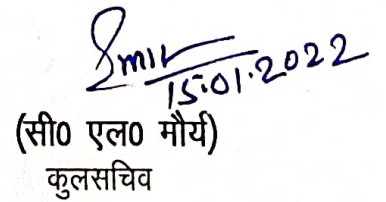 15.01.2022
(सी0 एल0 मौर्य)
कुलसचिव